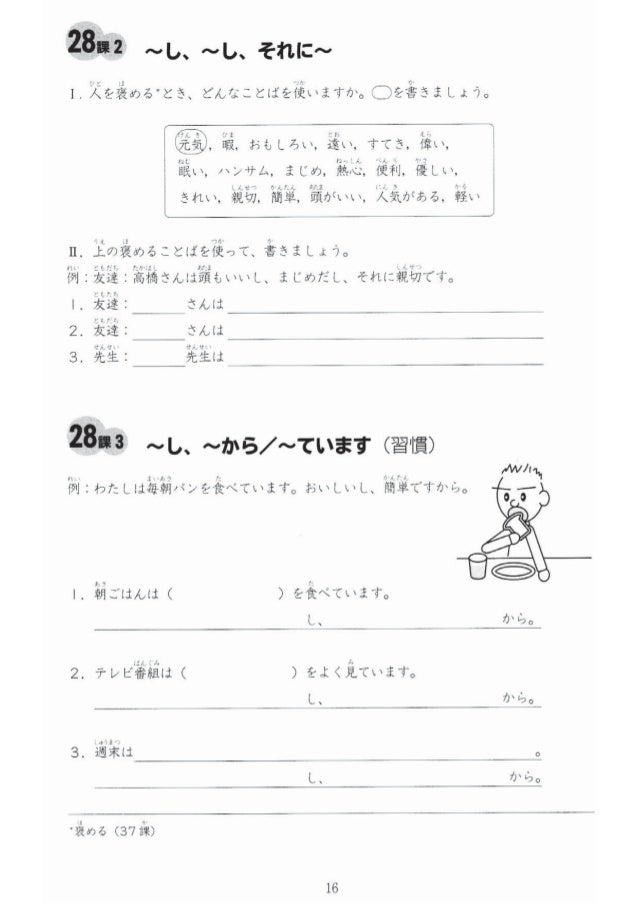 28課2 ～し、～し、それに～
I. 人を褒める*とき、どんなことばを使いますか。◯を書きましょう。
元気, 暇, おもしろい, 遠い, すてき, 偉い,
眠い, ハンサム, まじめ, 熱心, 便利, 優しい,
きれい, 親切, 簡単, 頭がいい, 人気がある, 軽い
II. 上の褒めることばを使って、書きましょう。
例：友達：高橋さんは頭もいいし、まじめだし、それに親切です。
1. 友達：______さんは______
2. 友達：______さんは______
3. 先生：______先生は______
28課3 ～し、～から／～ています（習慣）
例：わたしは毎朝パンを食べています。おいしいし、簡単ですから。
1. 朝ごはんは（　　　）を食べています。
______し、______から。
2. テレビ番組は（　　　）をよく見ています。
______し、______から。
3. 週末は______。
______し、______から。
*褒める（37課）
16